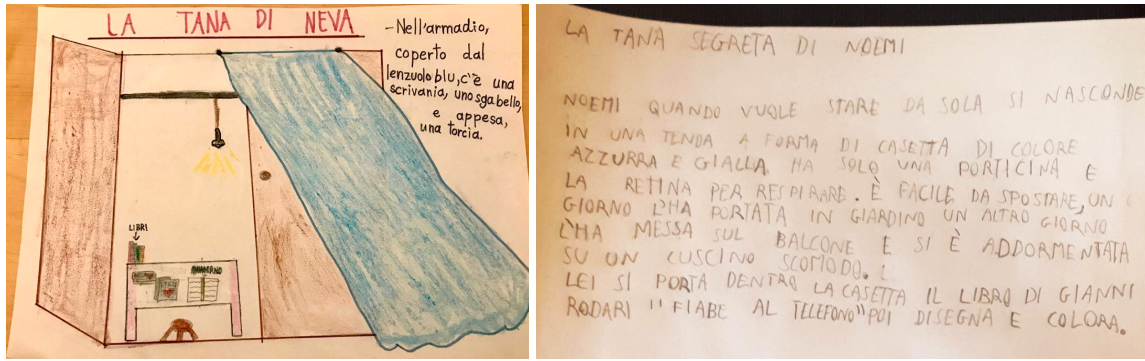 LA TANA DI NEVA
-Nell'armadio,
coperto dal
lenzuolo blu, c'è una
scrivania, uno sgabello,
e appesa,
una torcia.
LIBRI
QUADERNO
LA TANA SEGRETA DI NOEMI
NOEMI QUANDO VUOLE STARE DA SOLA SI NASCONDE
IN UNA TENDA A FORMA DI CASETTA DI COLORE
AZZURRA E GIALLA HA SOLO UNA PORTICINA E
LA RETINA PER RESPIRARE. È FACILE DA SPOSTARE, UN
GIORNO L'HA PORTATA IN GIARDINO UN ALTRO GIORNO
L'HA MESSA SUL BALCONE E SI È ADDORMENTATA
SU UN CUSCINO SCOMODO.
LEI SI PORTA DENTRO LA CASETTA IL LIBRO DI GIANNI
RODARI "FIABE AL TELEFONO" POI DISEGNA E COLORA.